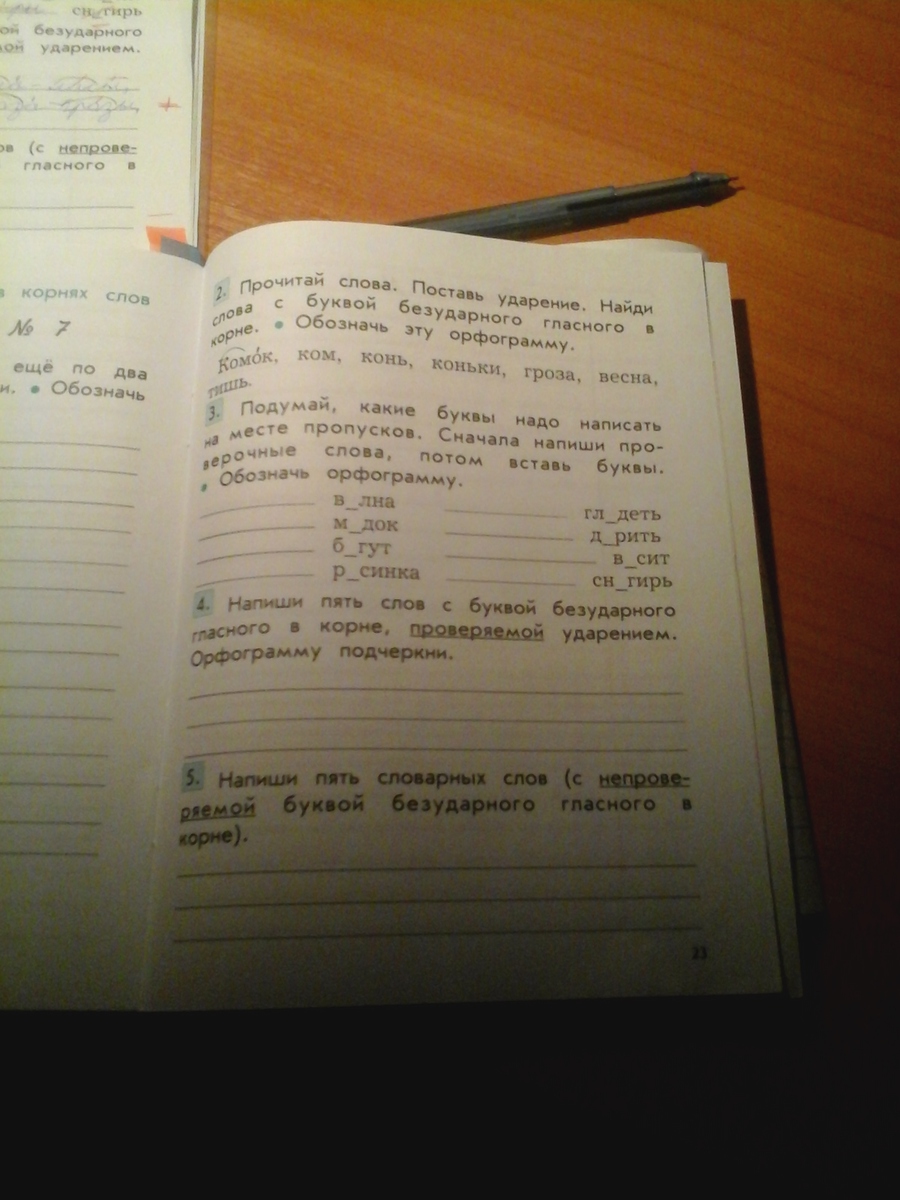 сн_гирь
ой безударного
мой ударением.
ов (с непрове-
гласного в
в корнях слов
№ 7
ещё по два
и. • Обозначь
2. Прочитай слова. Поставь ударение. Найди
слова с буквой безударного гласного в
корне. • Обозначь эту орфограмму.
Комо́к, ком, конь, коньки, гроза, весна,
тишь.
3. Подумай, какие буквы надо написать
на месте пропусков. Сначала напиши про-
верочные слова, потом вставь буквы.
• Обозначь орфограмму.
в_лна гл_деть
м_док д_рить
б_гут в_сит
р_синка сн_гирь
4. Напиши пять слов с буквой безударного
гласного в корне, проверяемой ударением.
Орфограмму подчеркни.
5. Напиши пять словарных слов (с непрове-
ряемой буквой безударного гласного в
корне).
23